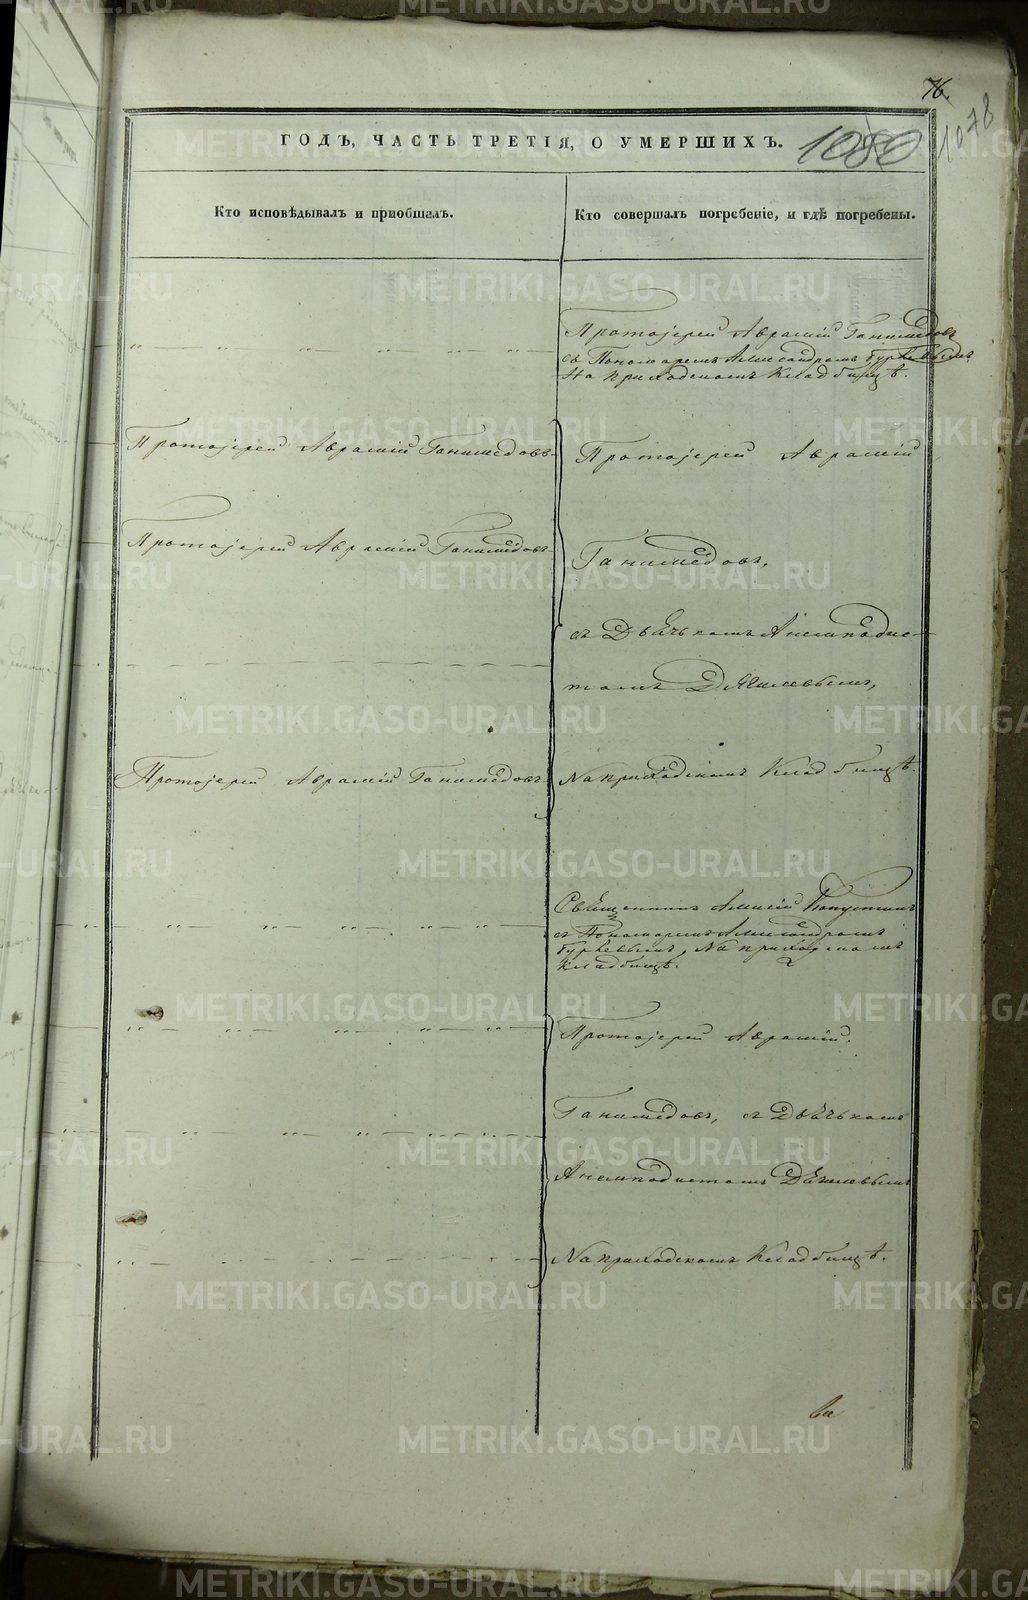 76.
ГОДЪ, ЧАСТЬ ТРЕТІЯ, О УМЕРШИХЪ.
1080
1078
Кто исповѣдывалъ и пріобщалъ.
Кто совершалъ погребеніе, и гдѣ погребены.
Протоіерей Аврамій Ганимедовъ
съ Пономаремъ Александромъ
На приходскомъ Кладбищѣ.
Протоіерей Аврамій Ганимедовъ
Протоіерей Аврамій
Протоіерей Аврамій Ганимедовъ
Ганимедовъ,
съ Дьячькомъ Анемподис-
томъ Дягилевымъ,
Протоіерей Аврамій Ганимедовъ
На приходскомъ Кладбищѣ.
Священникъ Алексій
съ Пономаремъ Александромъ
На приходскомъ
Кладбищѣ.
Протоіерей Аврамій
Ганимедовъ, съ Дьячькомъ
Анемподистомъ Дягилевымъ
На приходскомъ Кладбищѣ.
METRIKI.GASO-URAL.RU